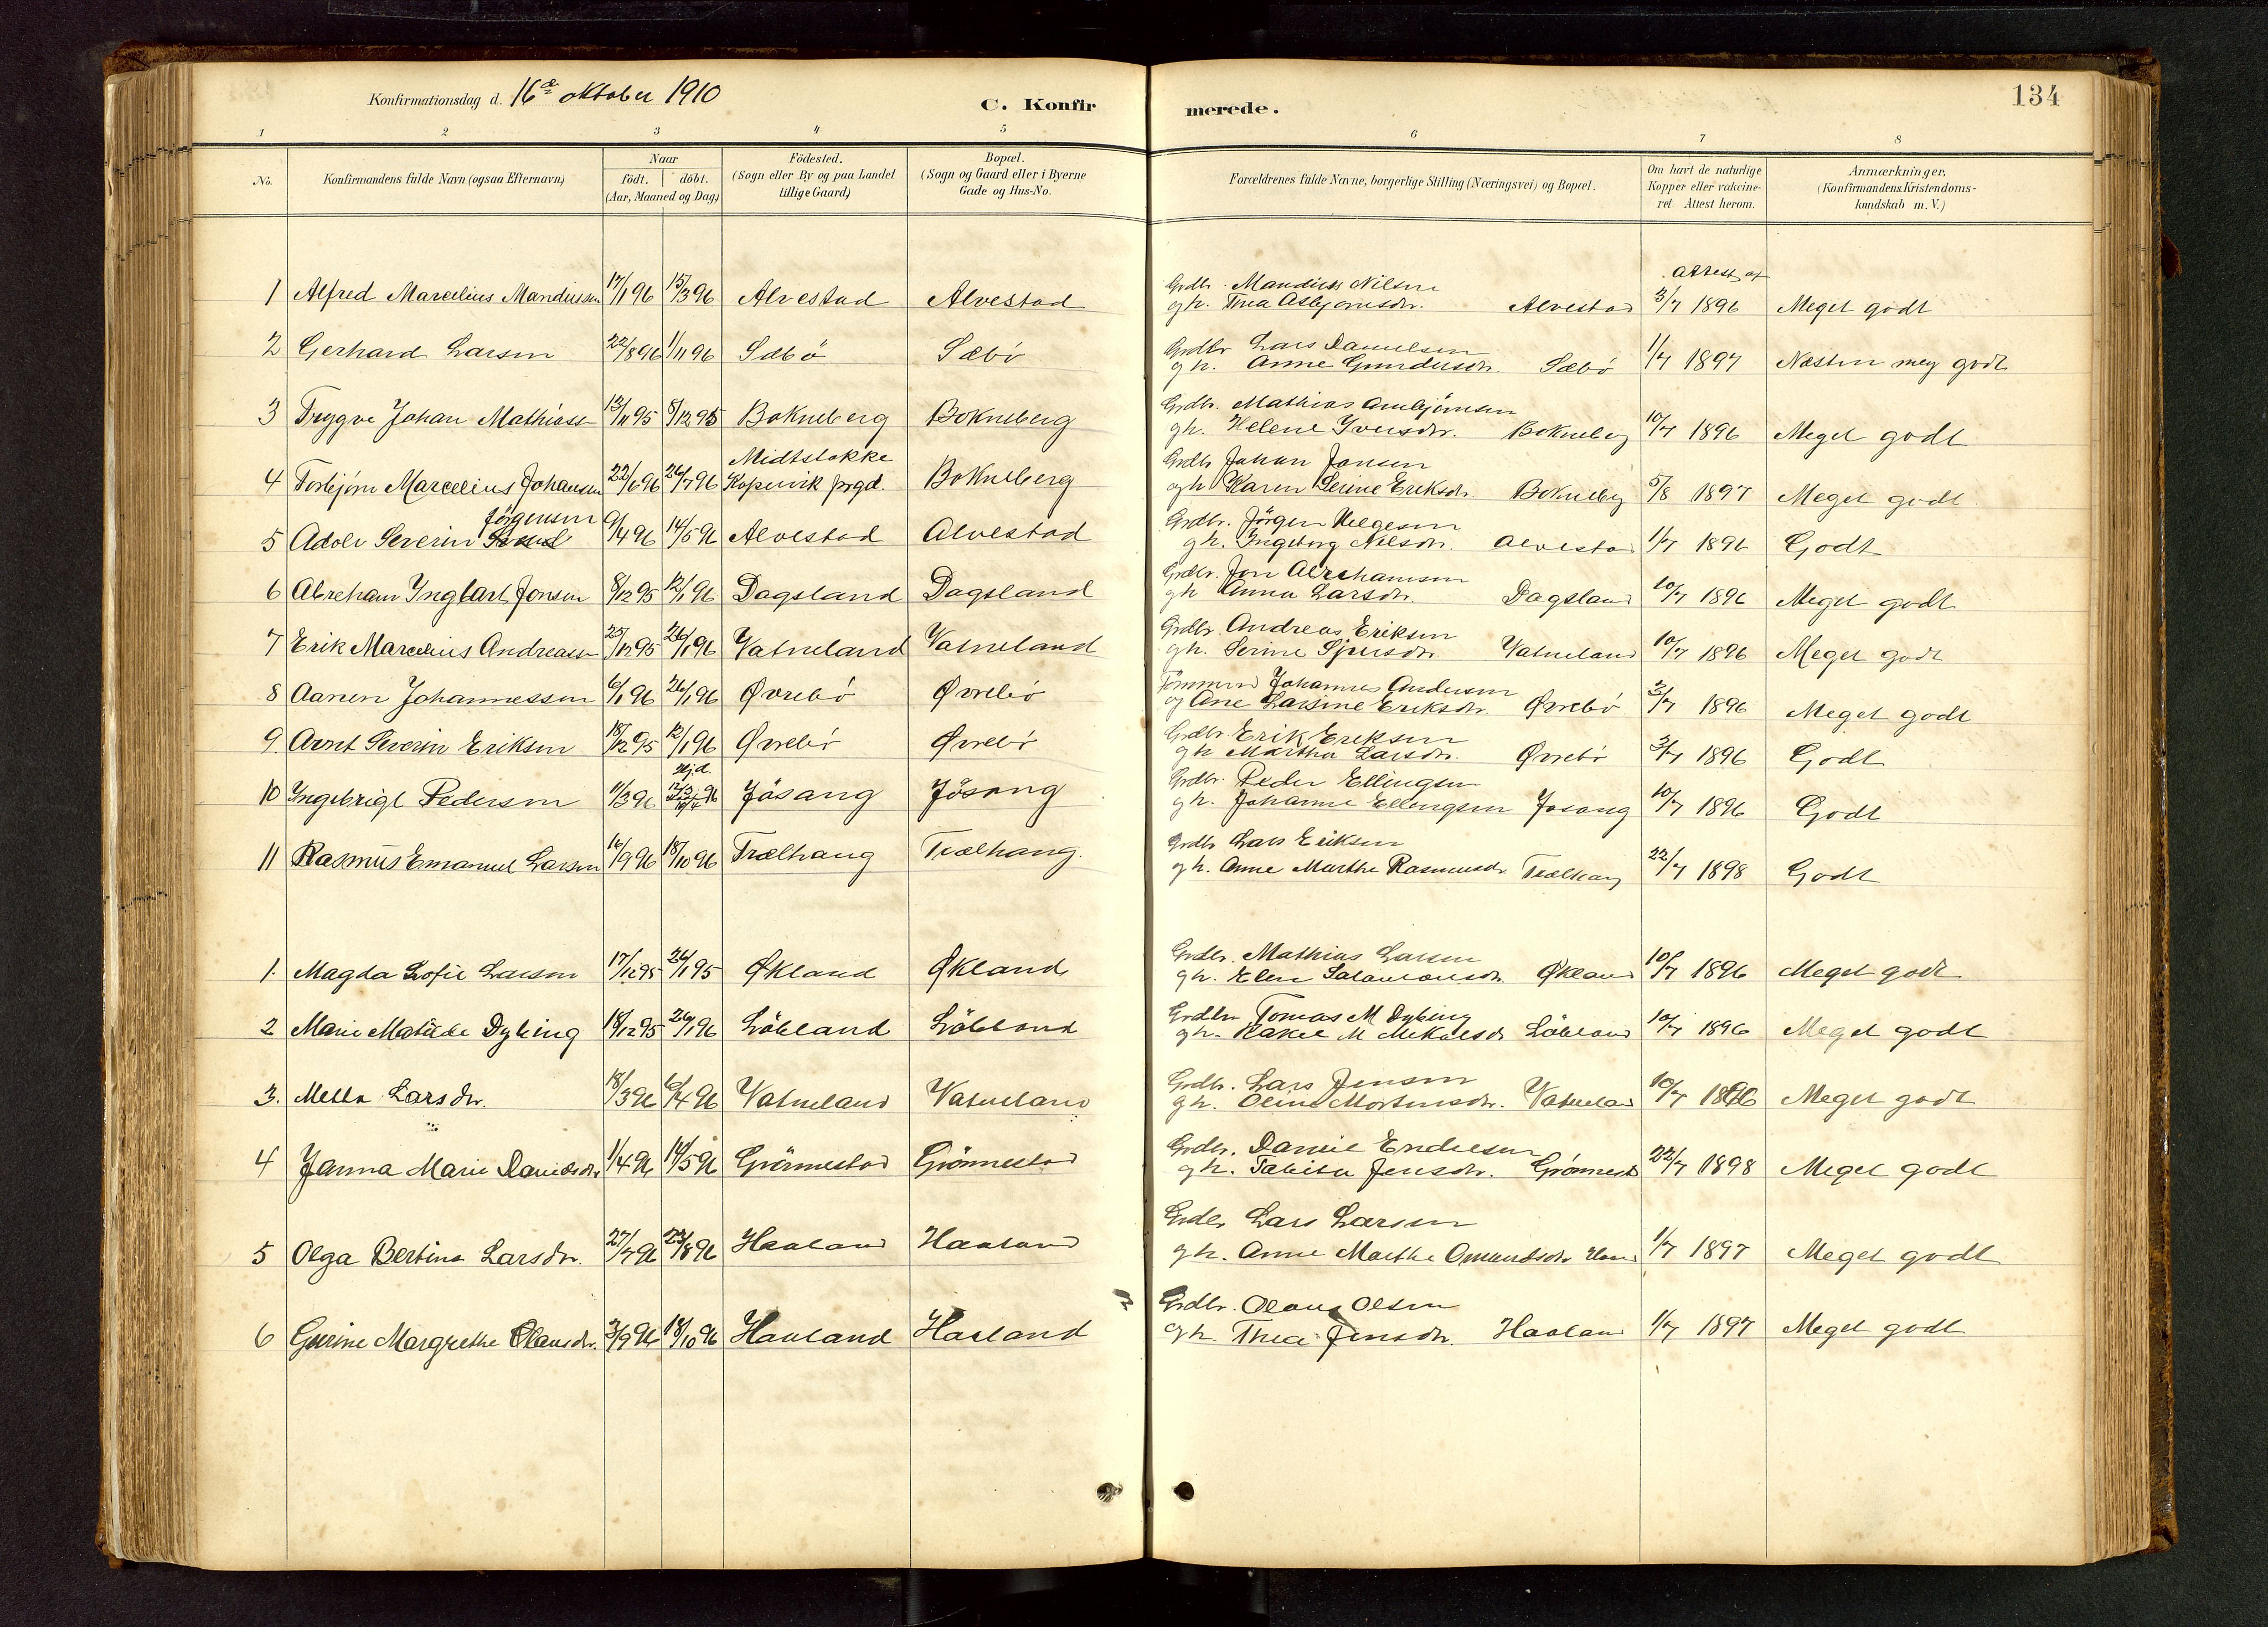 Konfirmationsdag d. 16de oktober 1910
C. Konfirmerede.
134
1 2 3 4 5 6 7 8
No.
Konfirmandens fulde Navn (ogsaa Efternavn)
Naar
födt. döbt.
(Aar, Maaned og Dag)
Födested.
(Sogn eller By og paa Landet
tillige Gaard)
Bopæl.
(Sogn og Gaard eller i Byerne
Gade og Hus-No.
Forældrenes fulde Navne, borgerlige Stilling (Næringsvei) og Bopæl.
Om havt de naturlige
Kopper eller vakcine-
ret. Attest herom.
Anmærkninger,
(Konfirmandens Kristendoms-
kundskab m. V.)
Attest af
Grdbr. Mandius Nilsen
1 Alfred Marcelius Mandiussen 17/1 96 15/3 96 Alvestad Alvestad g h. Thea Asbjørnsdr. Alvestad 3/7 1896 Meget godt
Grdbr Lars Danielsen
2 Gerhard Larsen 22/8 96 1/11 96 Sæbö Sæbö g h. Anne Gundersdr. Sæbö 1/7 1897 Næsten meg godt
Grdbr. Mathias Ambjørnsen
3 Trygve Johan Mathiass 13/11 95 8/12 95 Bokneberg Bokneberg g h. Helene Iversdr. Bokneberg 10/7 1896 Meget godt
Midtstokke
Grdbr Johan Jonsen
4 Torbjørn Marcelius Johansen 22/6 96 26/7 96 Kopervik prgd. Bokneberg og h Karen Serine Eriksdr. Bokneberg 5/8 1897 Meget godt
Jörgensen
Grdbr. Jörgen Helgesen
5 Adolv Severin 9/4 96 14/5 96 Alvestad Alvestad g h. Ingeborg Nilsdr. Alvestad 1/7 1896 Godt
Grdbr. Jon Abrahamsen
6 Abraham Inglart Jonsen 8/12 95 12/1 96 Dagsland Dagsland g h Anna Larsdr. Dagsland 10/7 1896 Meget godt
Grdbr. Andreas Eriksen
7 Erik Marcelius Andreass 25/12 95 26/1 96 Vatneland Vatneland g h. Serine Sjursdr. Vatneland 10/7 1896 Meget godt
Tømmerm Johannes Andersen
8 Aanen Johannessen 6/1 96 26/1 96 Øvrebö Øvrebö og Ane Larsine Eriksdr. Øvrebö 3/7 1896 Meget godt
Grdbr Erik Eriksen
9 Arnt Severin Eriksen 18/12 95 12/1 96 Øvrebö Øvrebö g h Martha Larsdr. Øvrebö 3/7 1896 Godt
Hj.d.
Grdbr. Peder Ellingsen
10 Ingebrigt Pedersen 11/3 96 12/3 96 Jösang Jösang g h. Johanne Ellingsen Josang 10/7 1896 Godt
19/4
Grdbr Lars Eriksen
11 Rasmus Emanuel Larsen 16/9 96 18/10 96 Trælhaug Trælhaug. g h. Anne Marthe Rasmusdr. Trælhaug 22/7 1898 Godt
Grdbr. Mathias Larsen
1. Magda Sofie Larsen 17/12 95 26/1 95 Økland Økland g h. Elen Salamonsdr. Økland 10/7 1896 Meget godt
Grdbr Tomas M Dybing
2 Marie Matilde Dybing 18/12 95 26/1 96 Löbland Löbland g h. Rakel M Mikalsdr Löbland 10/7 1896 Meget godt
Grdbr. Lars Jensen
3. Metta Larsdr. 18/3 96 6/4 96 Vatneland Vatneland g h. Oline Mortensdr. Vatneland 10/7 1896 Meget godt
Grdbr. Daniel Endresen
4 Janna Marie Danielsdr 1/4 96 14/5 96 Grönnestad Grönnestad g h. Tabita Jensdr. Grönnest 22/7 1898 Meget godt
Grdbr Lars Larsen
5 Olga Bertine Larsdr. 27/7 96 23/8 96 Haaland Haaland g h. Anne Marthe Omundsdr. Haa 1/7 1897 Meget godt
Grdbr. Olaus Olsen
6 Gurine Margrethe Olausdr. 3/9 96 18/10 96 Haaland Haaland g h. Thea Jensdr. Haaland 1/7 1897 Meget godt